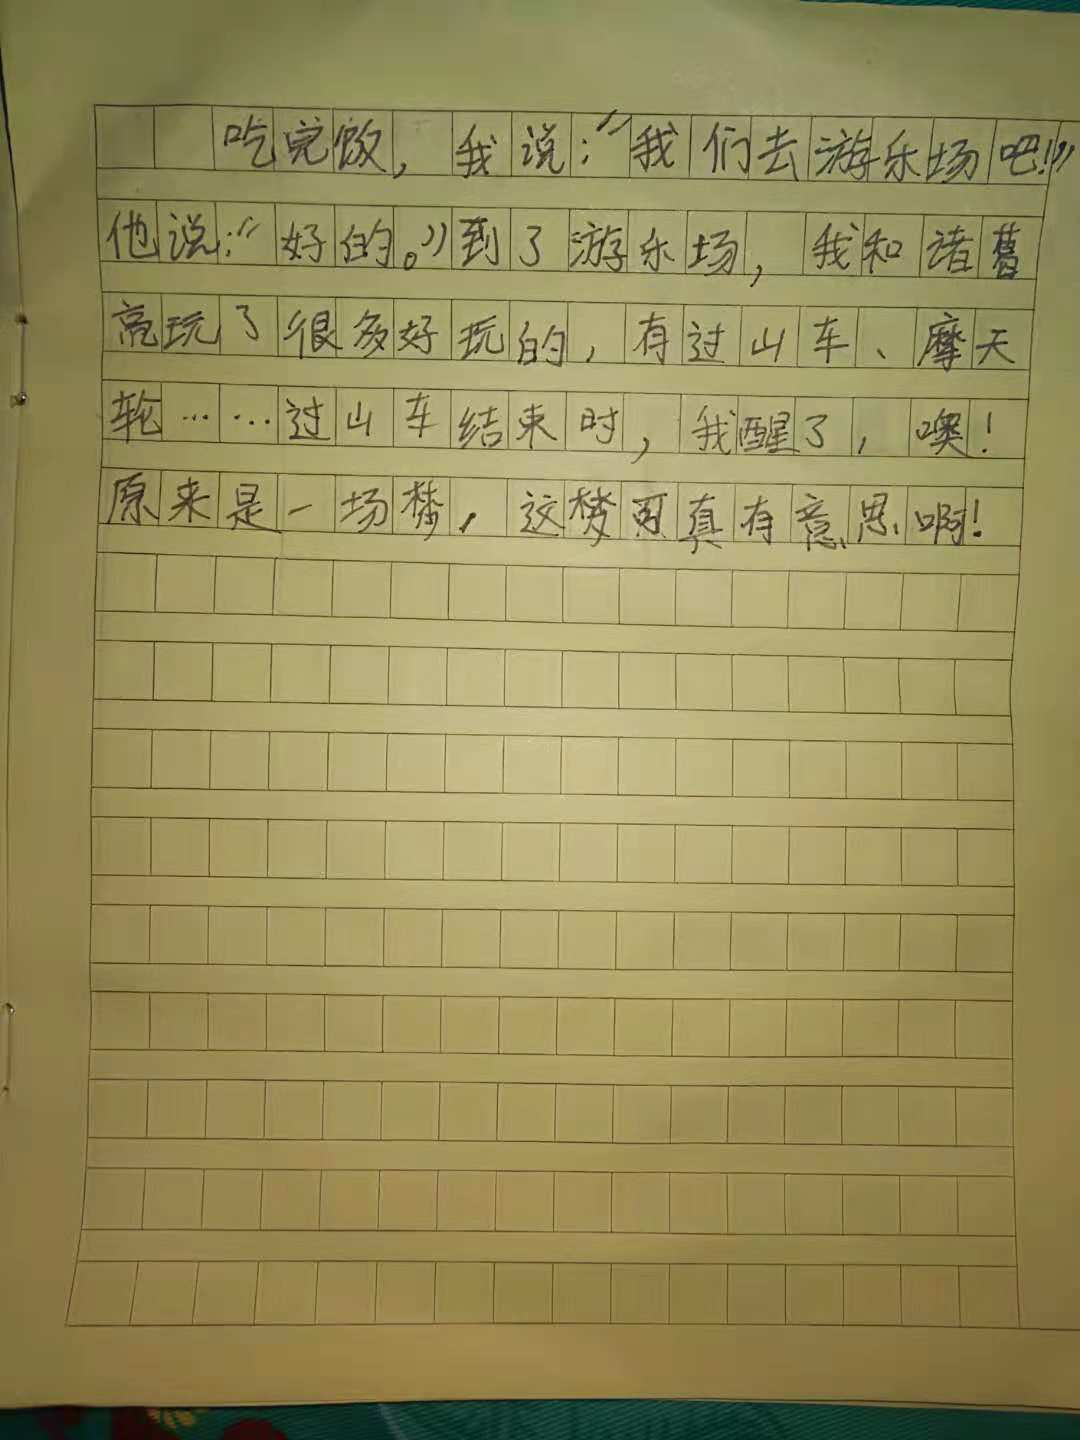 吃完饭，我说：“我们去游乐场吧！”
他说：“好的。”到了游乐场，我和诸葛
亮玩了很多好玩的，有过山车、摩天
轮……过山车结束时，我醒了，噢！
原来是一场梦，这梦可真有意思啊！